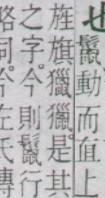 也
鬣動而直上
旌旗獵獵。是其
之字。今則鬣行
略同。今左氏傳